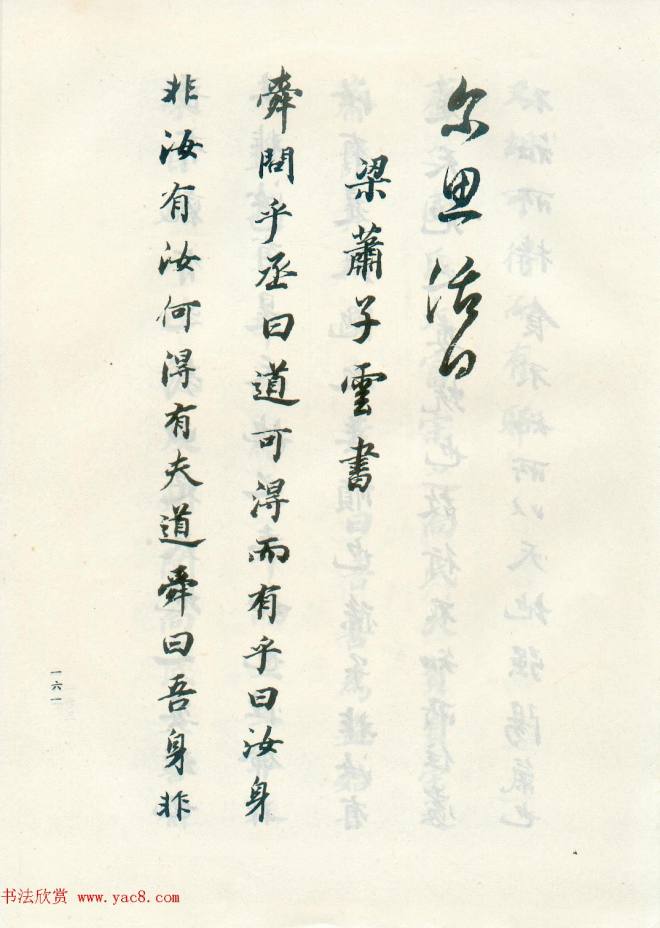 梁蕭子雲書
舜問乎丞曰道可淂而有乎曰汝身
非汝有汝何淂有夫道舜曰吾身非
一六一
书法欣赏 www.yac8.com